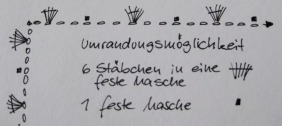 Umrandungsmöglichkeit
6 Stäbchen in eine
feste Masche
1 feste Masche